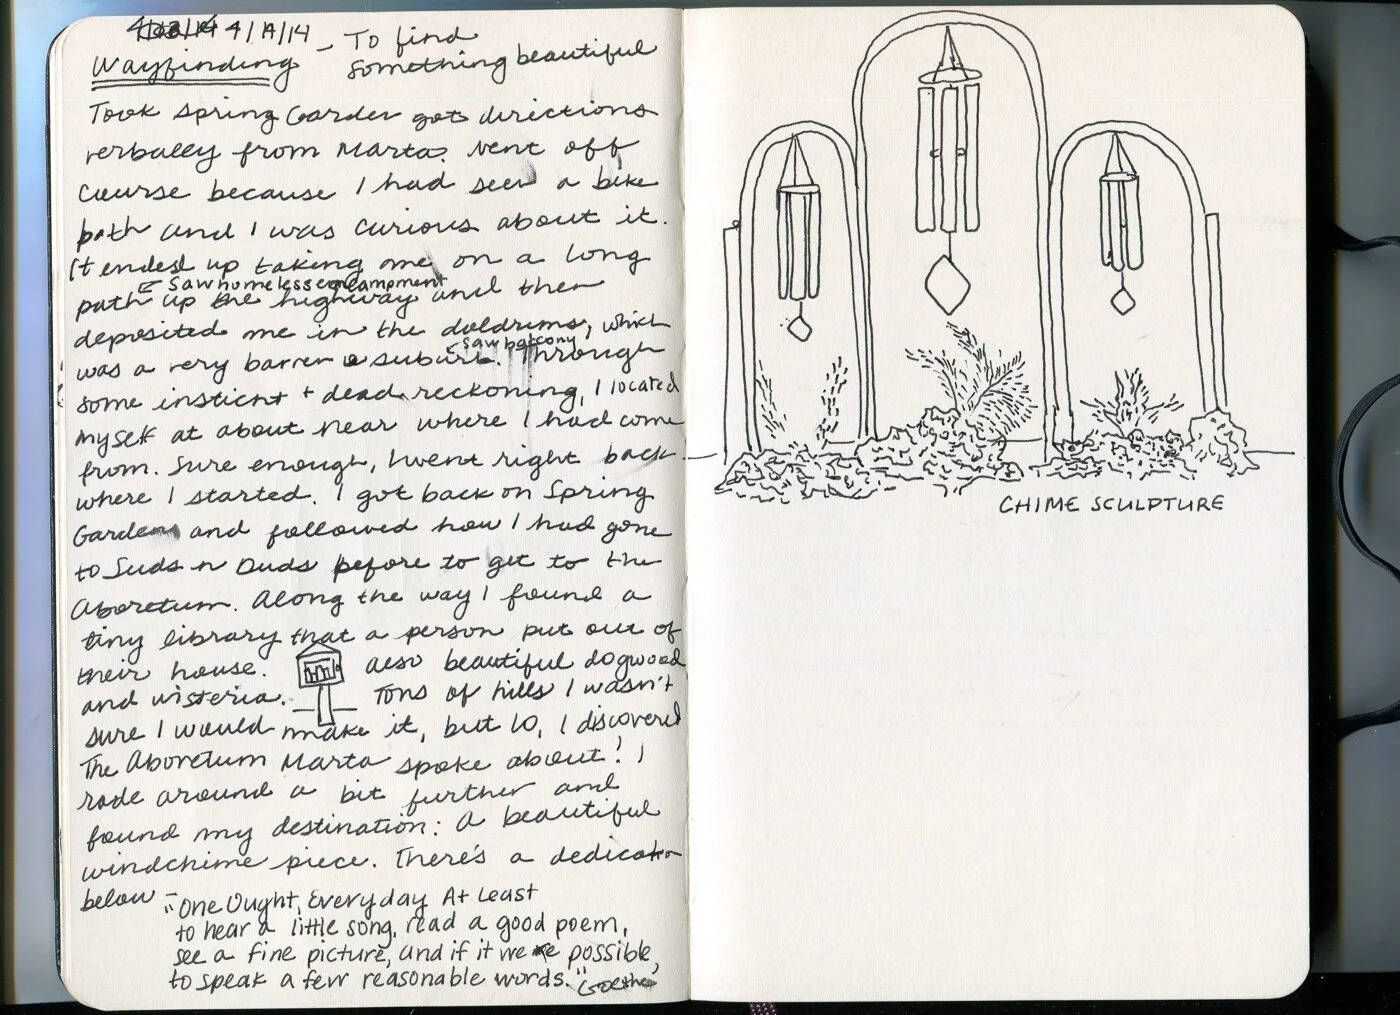 4/19/14 - To find
Wayfinding something beautiful
Took Spring Garden got directions
verbally from Marta. Went off
course because I had seen a bike
path and I was curious about it.
It ended up taking me on a long
saw homeless encampment
path up the highway and then
deposited me in the doldrums, which
saw balcony
was a very barren suburb. Through
some instict + dead reckoning, I located
myself at about near where I had come
from. Sure enough, I went right back
where I started. I got back on Spring
Garden and followed how I had gone
to Suds n Duds before to get to the
Aboretum. Along the way I found a
tiny library that a person put out of
their house. also beautiful dogwood
and wisteria. Tons of hills I wasn't
sure I would make it, but lo, I discovered
The Aboretum Marta spoke about! I
rode around a bit further and
found my destination: A beautiful
windchime piece. There's a dedication
below -
"One Ought, Everyday At Least
to hear a little song, read a good poem,
see a fine picture, and if it were possible,
to speak a few reasonable words." Goethe
CHIME SCULPTURE